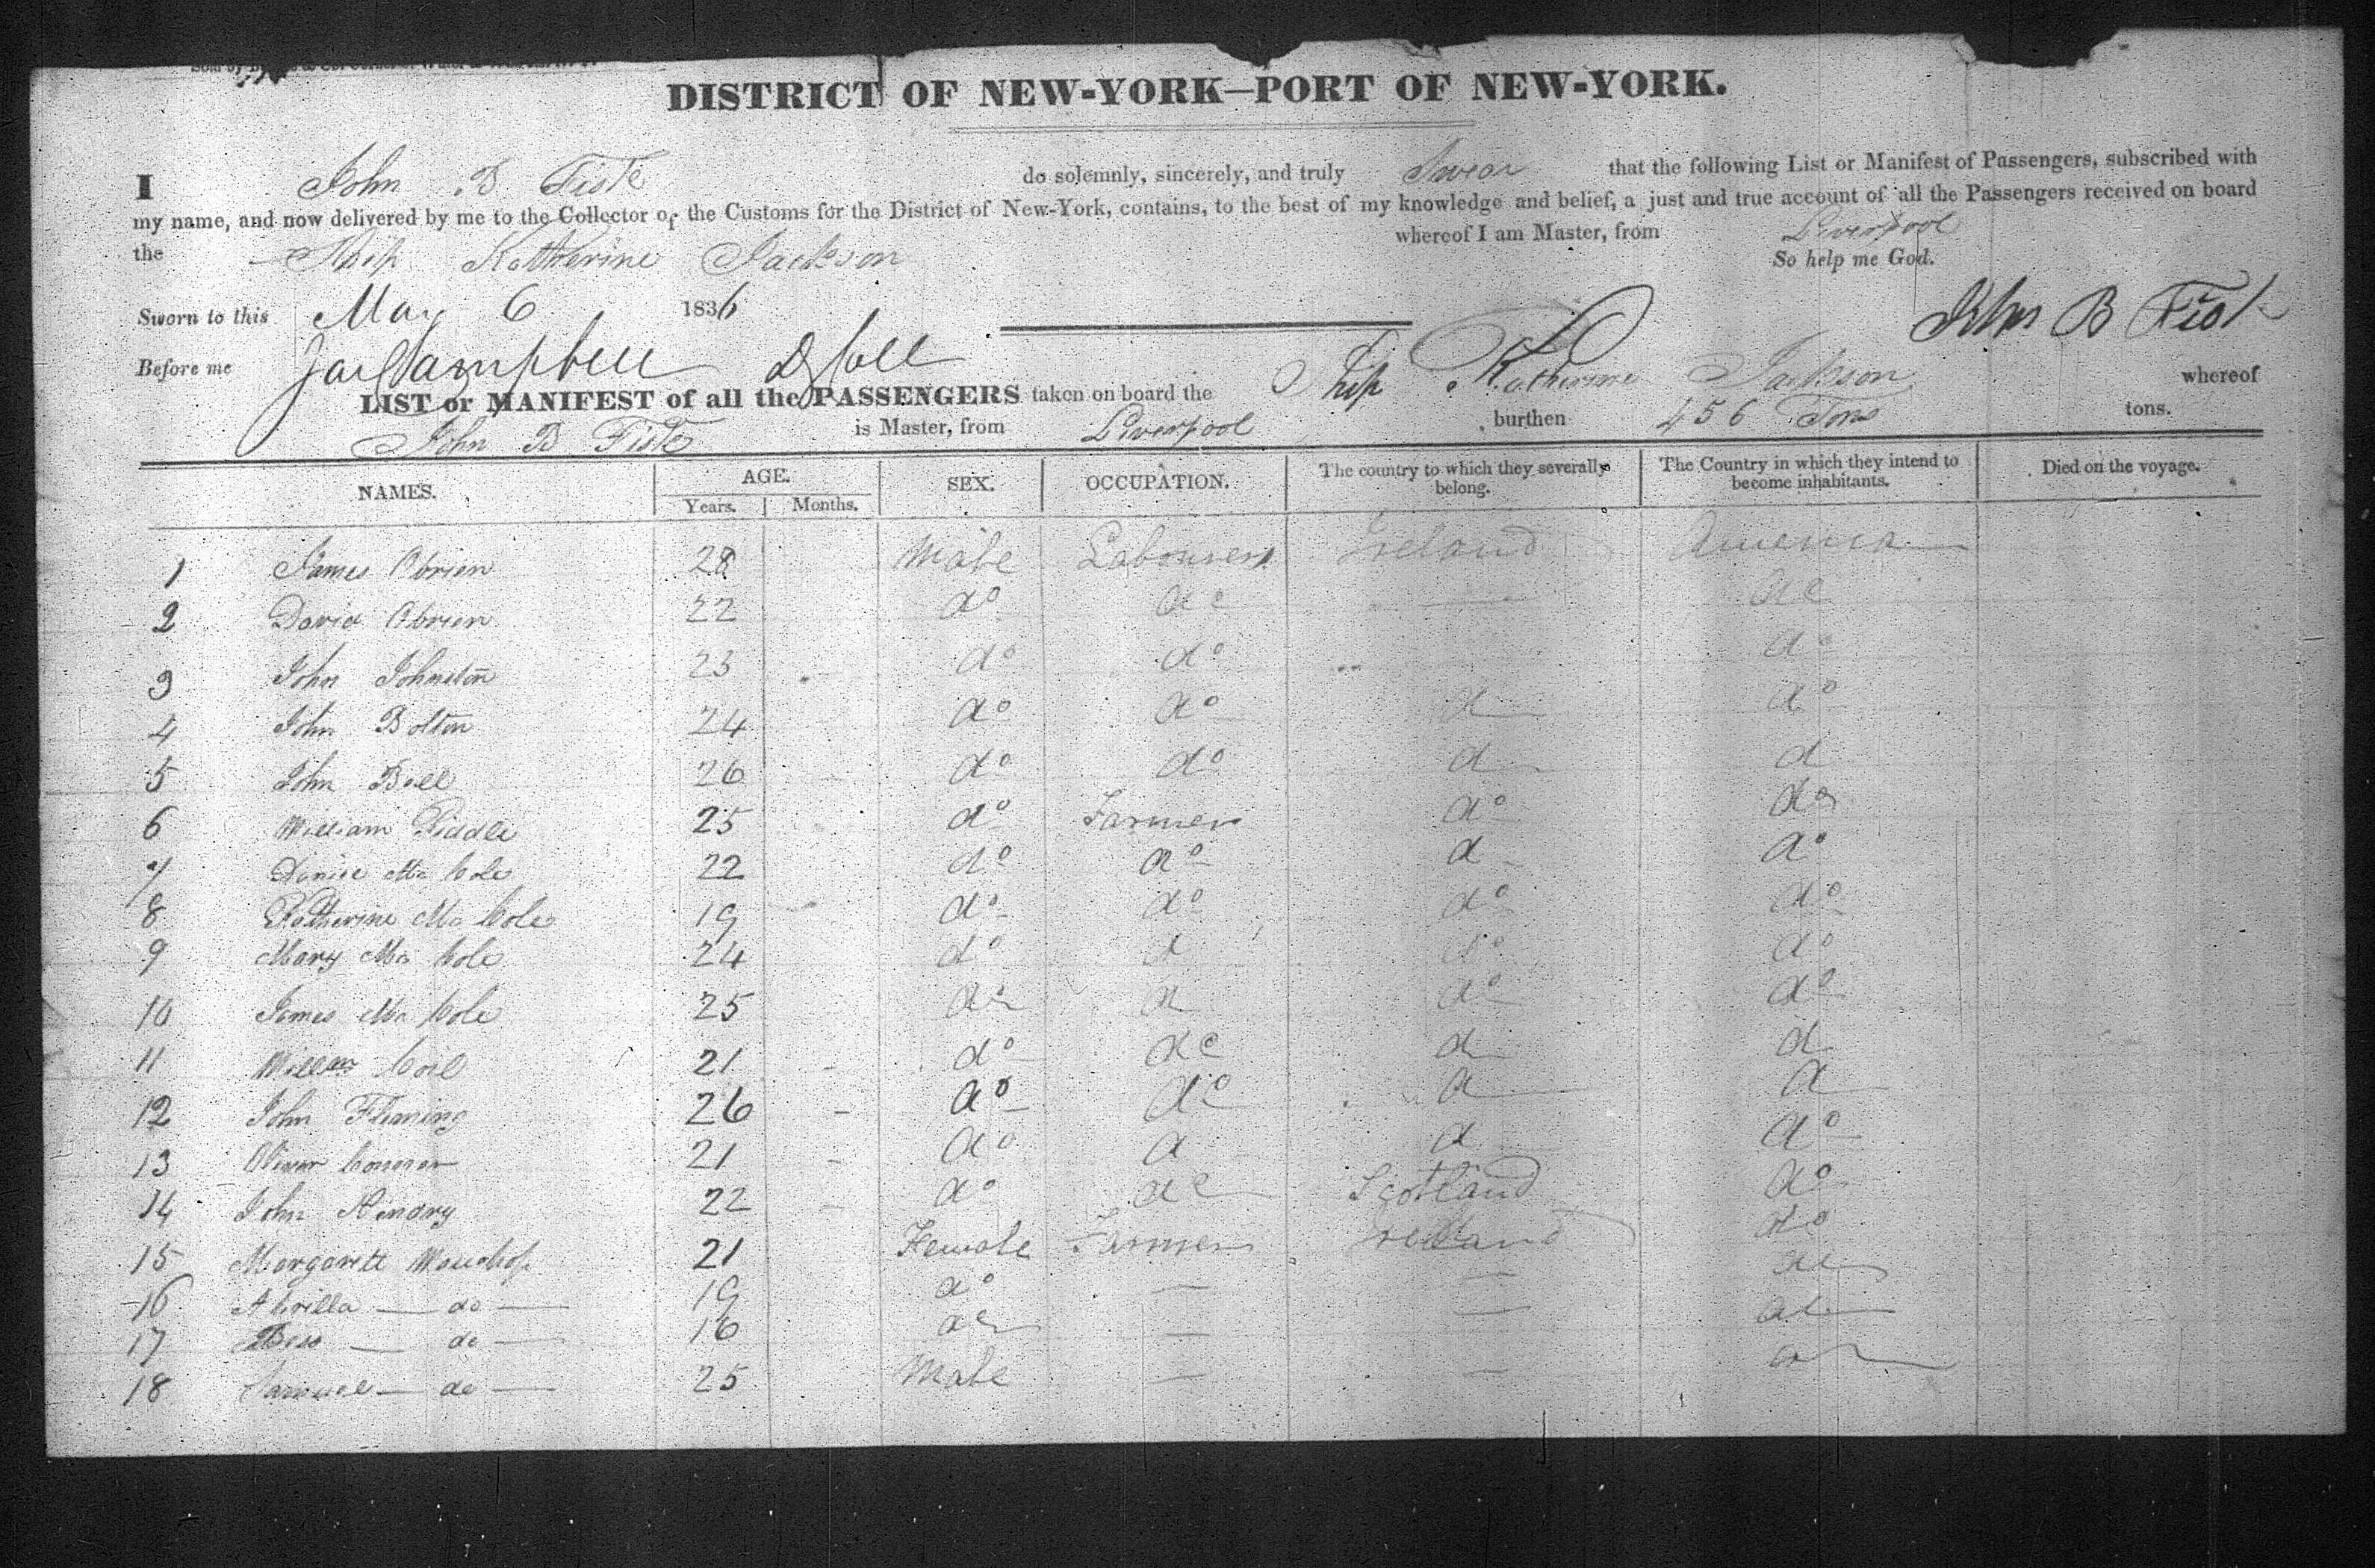 DISTRICT OF NEW-YORK—PORT OF NEW-YORK.
I John B Fisk do solemnly, sincerely, and truly Swear that the following List or Manifest of Passengers, subscribed with
my name, and now delivered by me to the Collector of the Customs for the District of New-York, contains, to the best of my knowledge and belief, a just and true account of all the Passengers received on board
the Ship Katherine Jackson whereof I am Master, from Liverpool
So help me God.
Sworn to this May 6 1836
John B Fisk
Before me Jas Campbell D Coll
LIST or MANIFEST of all the PASSENGERS taken on board the Ship Katherine Jackson whereof
John B Fisk is Master, from Liverpool burthen 456 Tons tons.
NAMES. AGE. SEX. OCCUPATION. The country to which they severally belong. The Country in which they intend to become inhabitants. Died on the voyage.
Years. Months.
1 James Obrien 28 Male Labourers Ireland America
2 David Obrien 22 do do — do
3 John Johnston 23 do do " do
4 John Bolton 24 do do d do
5 John Bell 26 do do d d
6 William Riddle 25 do Farmer do do
7 Dinise Mc Cole 22 do do d do
8 Katherine Mc Cole 19 do do do do
9 Mary Mc Cole 24 do d do do
10 James Mc Cole 25 do d do do
11 Willm Coil 21 do do d d
12 John Fleming 26 do do d d
13 Oliver 21 do d d do
14 John Hendry 22 do do Scotland do
15 Margarett Wauchop 21 Female Farmers Ireland do
16 — do — 19 do — — do
17 Bess — do — 16 do — — do
18 Samuel — do — 25 Male — — do